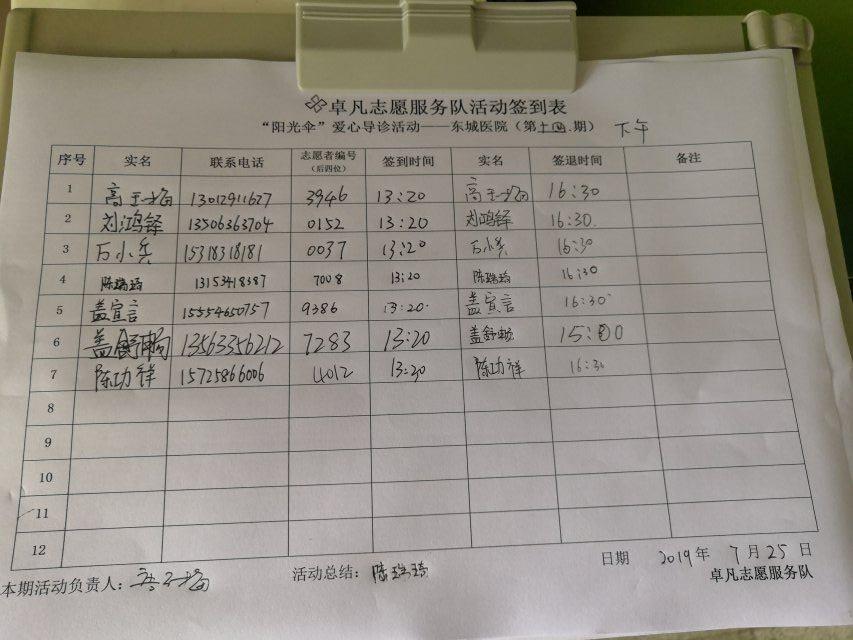 卓凡志愿服务队活动签到表
“阳光伞”爱心导诊活动——东城医院（第十四.期） 下午
序号 实名 联系电话 志愿者编号（后四位） 签到时间 实名 签退时间 备注
1 高玉梅 13012911627 3946 13:20 高玉梅 16:30
2 刘鸿铎 13506363704 0152 13:20 刘鸿铎 16:30.
3 万小兵 15318318181 0037 13:20 万小兵 16:30
4 陈瑞琦 13153418387 7008 13:20 陈瑞琦 16:30
5 盖宣言 15554650757 9386 13:20. 盖宣言 16:30
6 盖舒畅 13563356212 7283 13:20 盖舒畅 15:00
7 陈功祥 15725866006 4012 13:20 陈功祥 16:30
8
9
10
11
12
本期活动负责人：高玉梅 活动总结：陈瑞琦 日期 2019年 7月25日
卓凡志愿服务队